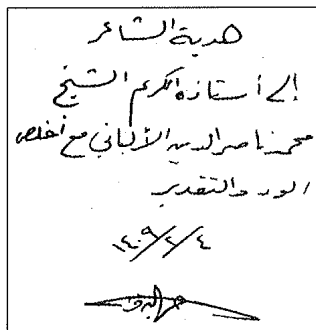 هدية الشاعر
إلى أستاذه الكريم الشيخ
محمد ناصر الدين الألباني مع أخلص
الود والتقدير
١٤٠٩/٢/٤